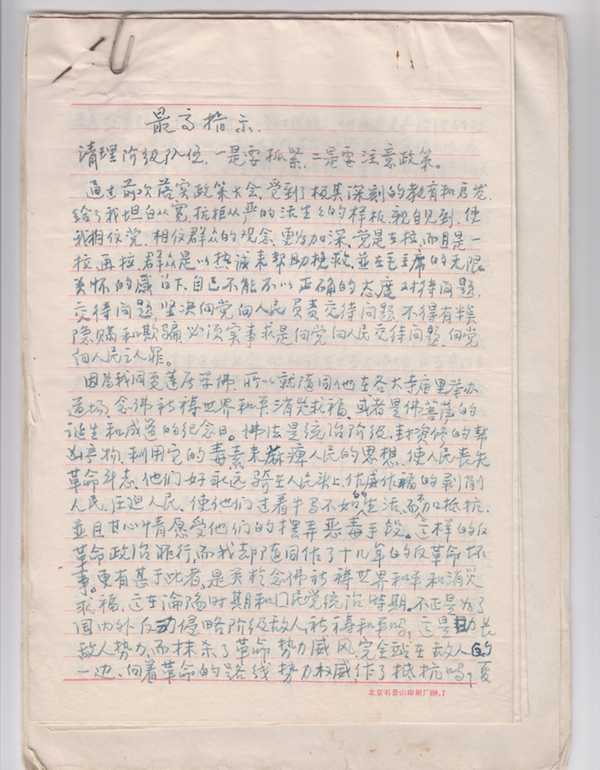 最高指示.
清理阶级队伍，一是要抓紧，二是要注意政策。
通过前次落实政策大会，受到了极其深刻的教育和启发，
给了我坦白从宽，抗拒从严的活生生的样板，亲自见到，使
我相信党，相信群众的观念，更为加深，党是在拉，而且是一
拉，再拉，群众是以热诚来帮助挽救，並在毛主席的无限
关怀的感召下，自己不能不以正确的态度对待问题，
交待问题，坚决向党向人民负责交待问题，不得有半点
隐瞒和欺骗，必须实事求是向党向人民交待问题，向党
向人民之人罪。
因为我同夏莲居学佛，所以就随同他在各大寺庙里举办
道场，念佛祈祷世界和平消灾求福，或者是佛菩萨的
诞生和成道的纪念日。佛法是统治阶级，封资修的帮
凶产物，利用它的毒素来麻痺人民的思想，使人民丧失
革命斗志，他们好永远骑在人民头上，作威作福的剥削
人民，压迫人民，使他们过着牛马不如的生活，而不加抵抗，
並且甘心情愿受他们的摆弄恶毒手段。这样的反
革命政治罪行，而我去随同作了十几年的反革命坏
事。更有甚于此者，是关於念佛祈祷世界和平和消灾
求福，这在沦陷时期和国民党统治时期，不正是为了
国内外反动侵略阶级敌人祈祷和平吗，这是助长
敌人势力，而抹杀了革命势力威风，完全站在敌人的
一边，向着革命的路线势力权威，作了抵抗吗，夏
北京石景山印刷厂69.7